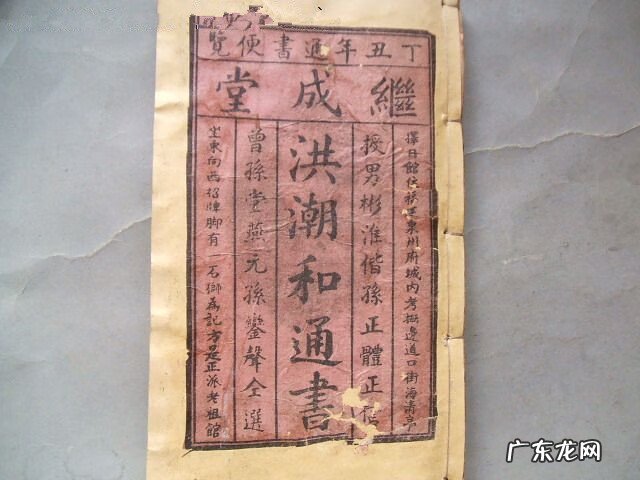 丁丑年通書便覽
繼成堂
擇日館住福建泉州府城內考棚邊道口街海清亭
授男彬淮偕孫正體正
洪潮和通書
曾孫堂燕元孫鑾聲仝選
坐東向西招牌脚有一石獅為記方是正派老祖館
广东龙网